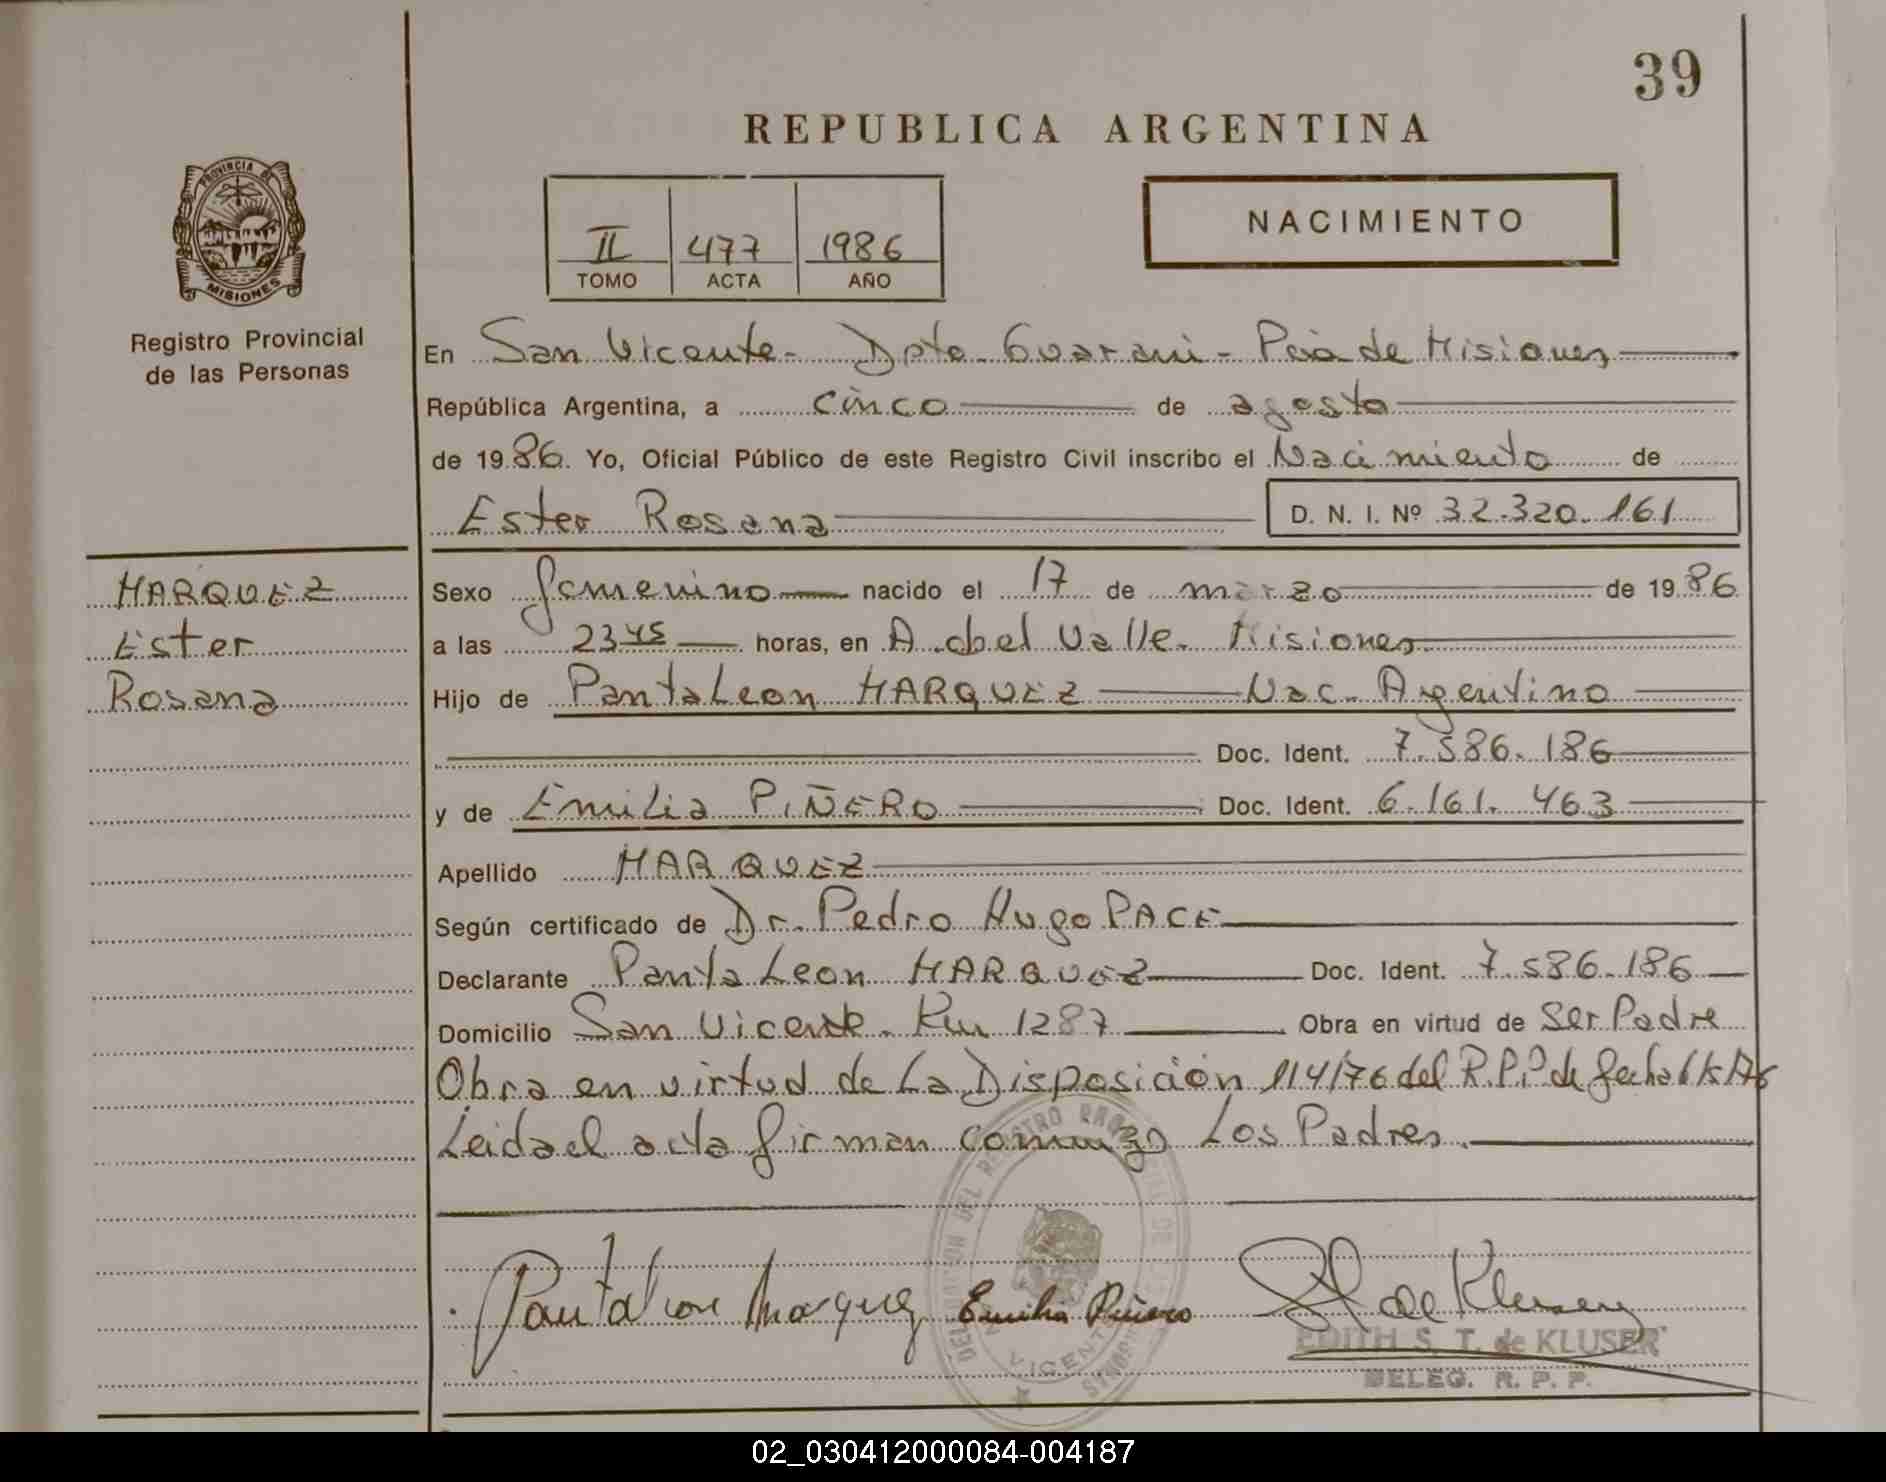 39
REPUBLICA ARGENTINA
PROVINCIA DE
MISIONES
II 477 1986
TOMO ACTA AÑO
NACIMIENTO
Registro Provincial
de las Personas
En San Vicente - Dpto. Guarani - Pcia de Misiones
República Argentina, a cinco de agosto
de 1986. Yo, Oficial Público de este Registro Civil inscribo el Nacimiento de
Ester Rosana D. N. I. Nº 32.320.161
MARQUEZ
Ester
Rosana
Sexo femenino nacido el 17 de marzo de 1986
a las 23 45 horas, en A. del Valle - Misiones
Hijo de Pantaleon MARQUEZ Nac. Argentino
Doc. Ident. 7.586.186
y de Emilia PIÑERO Doc. Ident. 6.161.463
Apellido MARQUEZ
Según certificado de Dr. Pedro Hugo PACE
Declarante Pantaleon MARQUEZ Doc. Ident. 7.586.186
Domicilio San Vicente - Km 1287 Obra en virtud de Ser Padre
Obra en virtud de La Disposición 114/76 del R.P.P de fecha
Leida el acta firman conmigo Los Padres.
Pantaleon Marquez Emilia Piñero de Kluser
EDITH S. T. de KLUSER
DELEG. R. P. P.
DELEGACION DEL REGISTRO
VICENTE
02_030412000084-004187